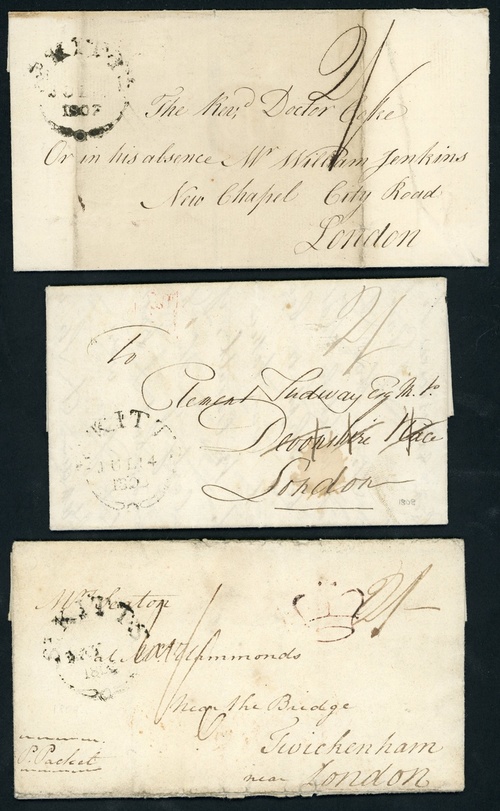 St KITTS
JUL
1807
2/
The Rev,d Doctor Coke
Or in his absence Mr William Jenkins
New Chapel City Road
London
2/
To
Clement Tudway Esq M.P.
Devonshire Place
London
KITT
JUL 14
1808
2/-
St KITTS
at Hammonds
near the Bridge
Twickenham
near London
P. Packet